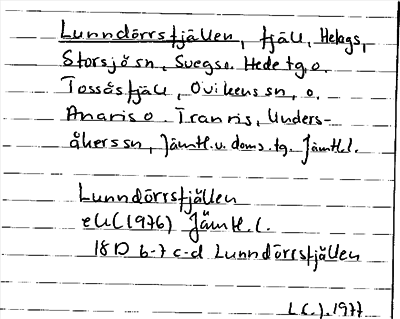 Lunndörrsfjällen, fjäll, Helags,
Storsjö sn, Svegs o. Hede tg, o.
Tossåsfjäll, Ovikens sn, o.
Anaris o. Tranris, Unders-
åkers sn, Jämtl. v. doms. tg. Jämtl. l.
Lunndörrsfjällen
ek (1976) Jämtl. l.
18D b-7 c-d Lunndörrsfjällen
1977